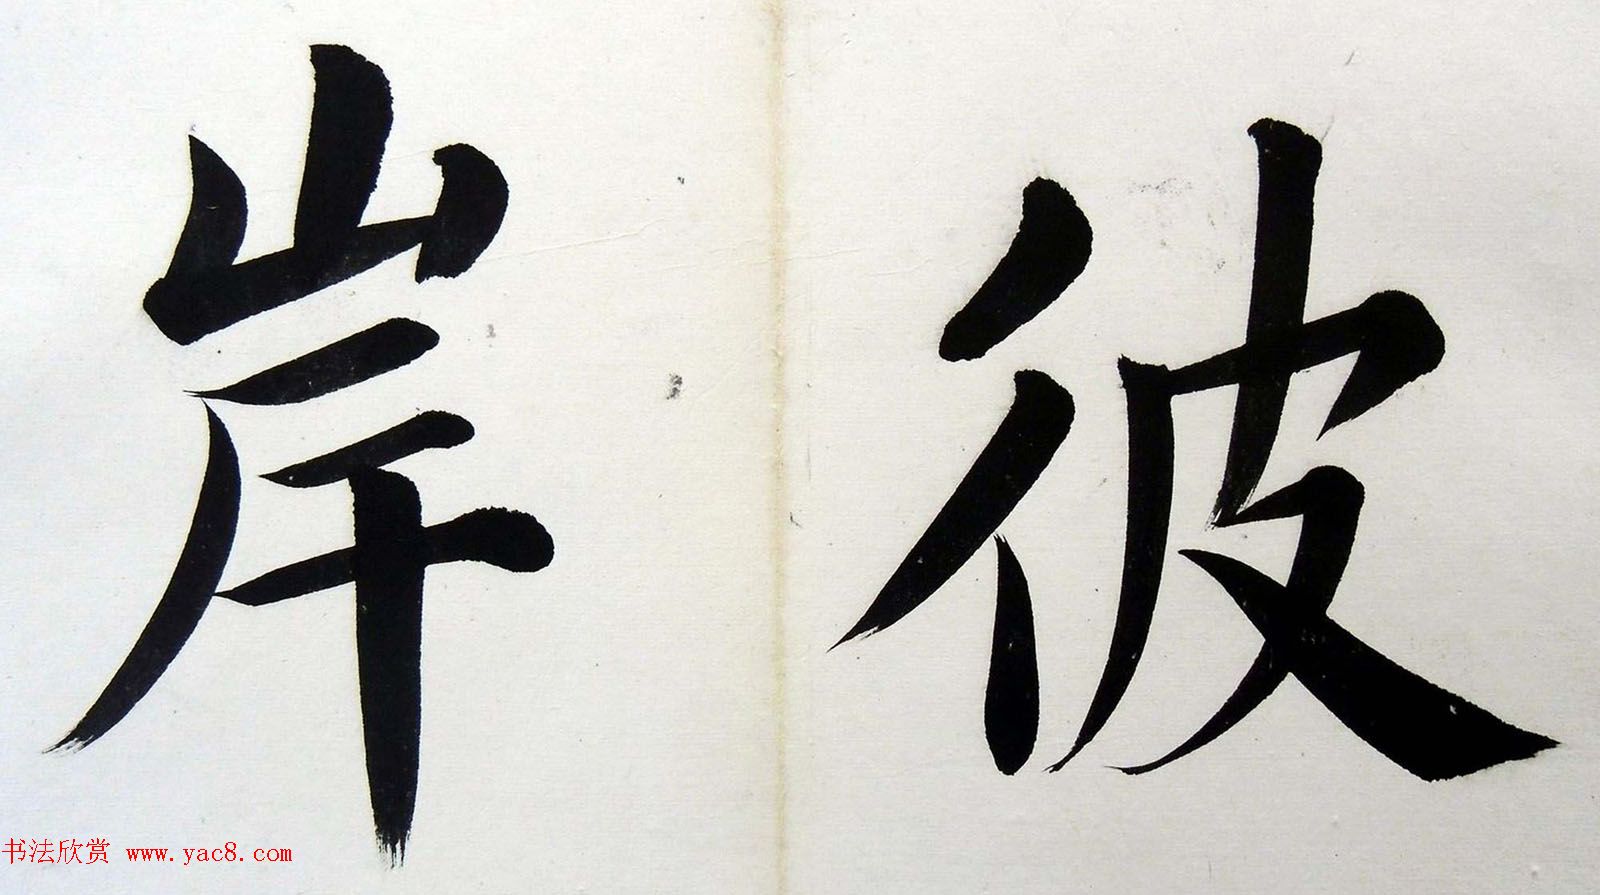 彼岸
书法欣赏 www.yac8.com